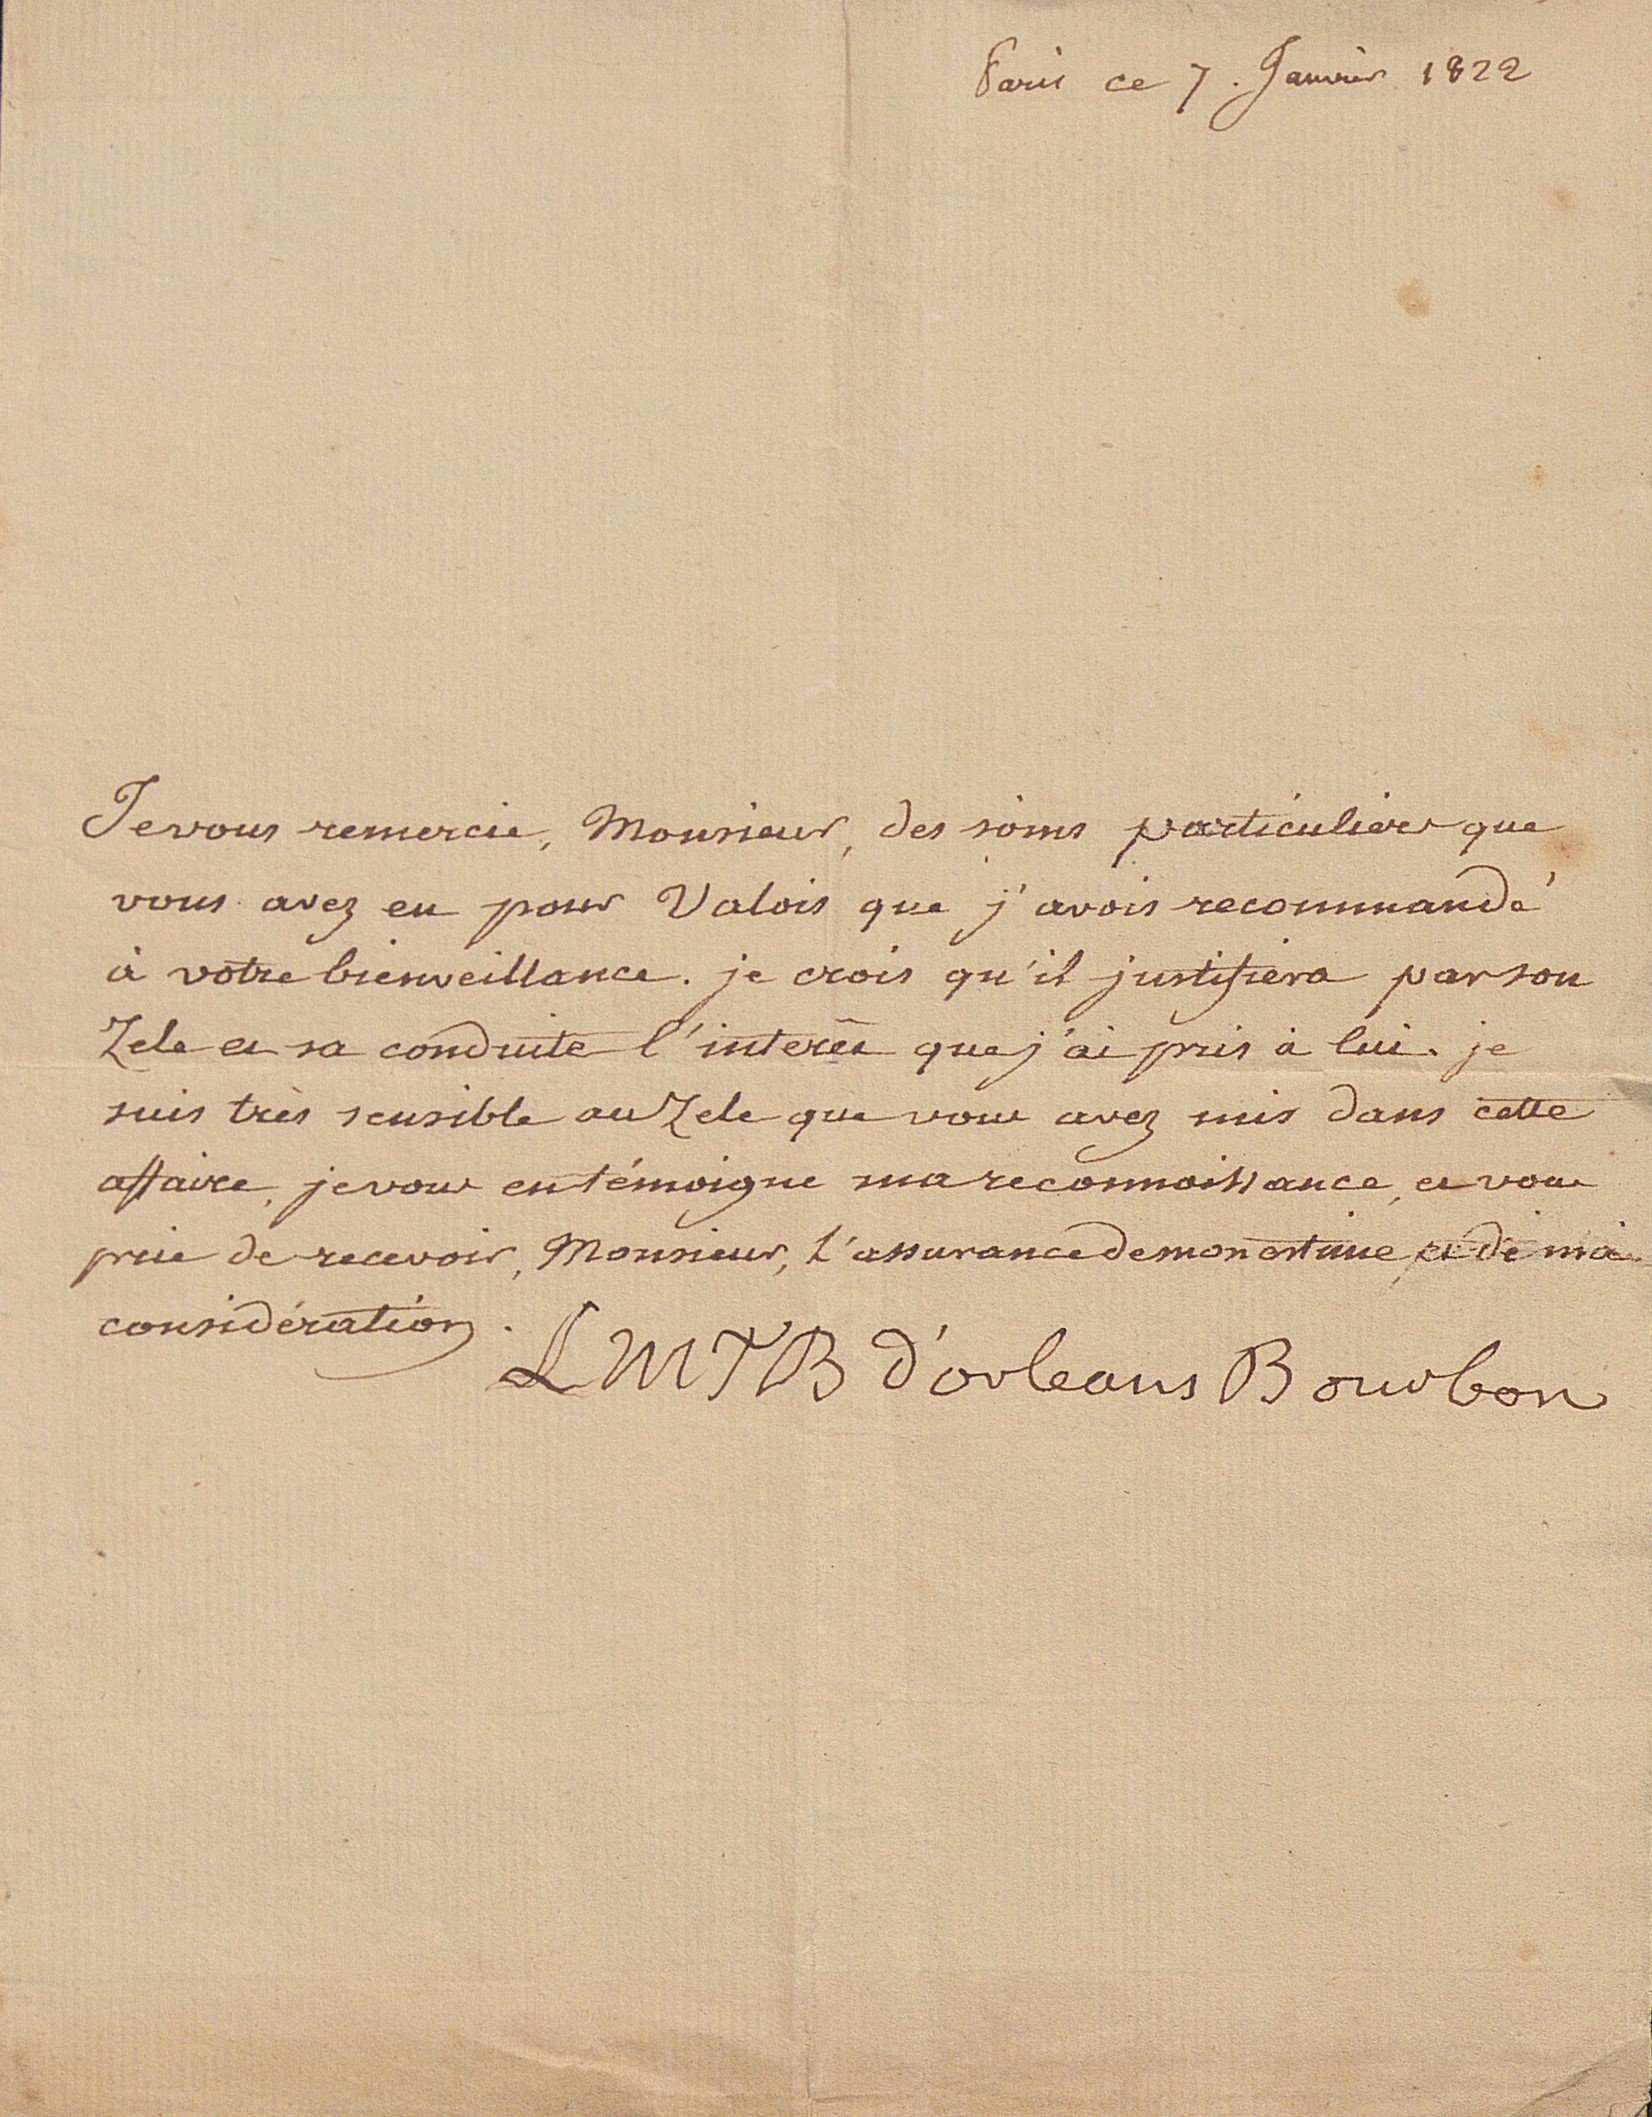 Paris ce 7. Janvier 1822
Je vous remercie, Monsieur, des soins particuliers que
vous avez eu pour Valois que j'avois recommandé
à votre bienveillance. je crois qu'il justifiera par son
Zele et sa conduite l'interêt que j'ai pris à lui. je
suis très sensible au Zele que vous avez mis dans cette
affaire, je vous en témoigne ma reconnoissance, et vous
prie de recevoir, Monsieur, l'assurance de mon estime et de ma
considération.
L M T B d'orleans Bourbon